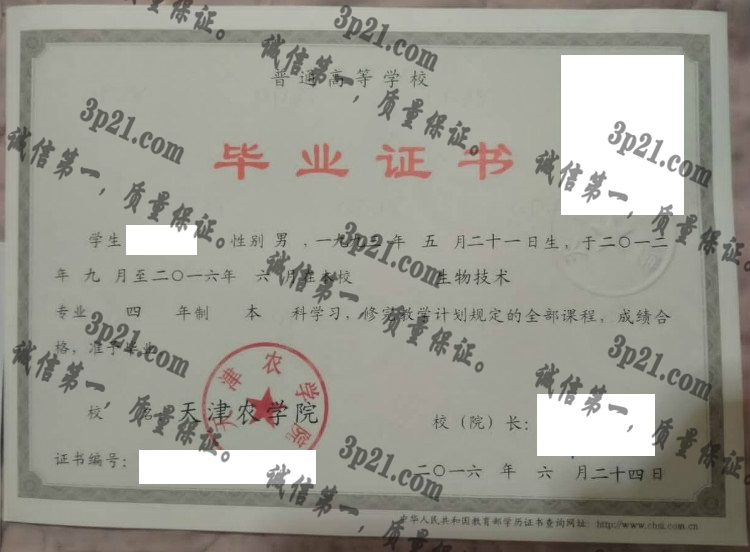 普通高等学校
毕业证书
学生 性别 男 ，一九九三 年 五 月二十一日生，于二〇一二
年 九 月至二〇一六年 六 月在本校 生物技术
专业 四 年制 本 科学习，修完教学计划规定的全部课程，成绩合
格，准予毕业
校 名 天津农学院
天津农学院
校（院）长：
证书编号：
二〇一六 年 六 月二十四日
中华人民共和国教育部学历证书查询网址：http://www.chsi.com.cn
3p21.com
诚信第一，质量保证。
3p21.com
诚信第一，质量保证。
3p21.com
诚信第一，质量保证。
3p21.com
诚信第一，质量保证。
3p21.com
诚信第一，质量保证。
3p21.com
诚信第一，质量保证。
3p21.com
诚信第一，质量保证。